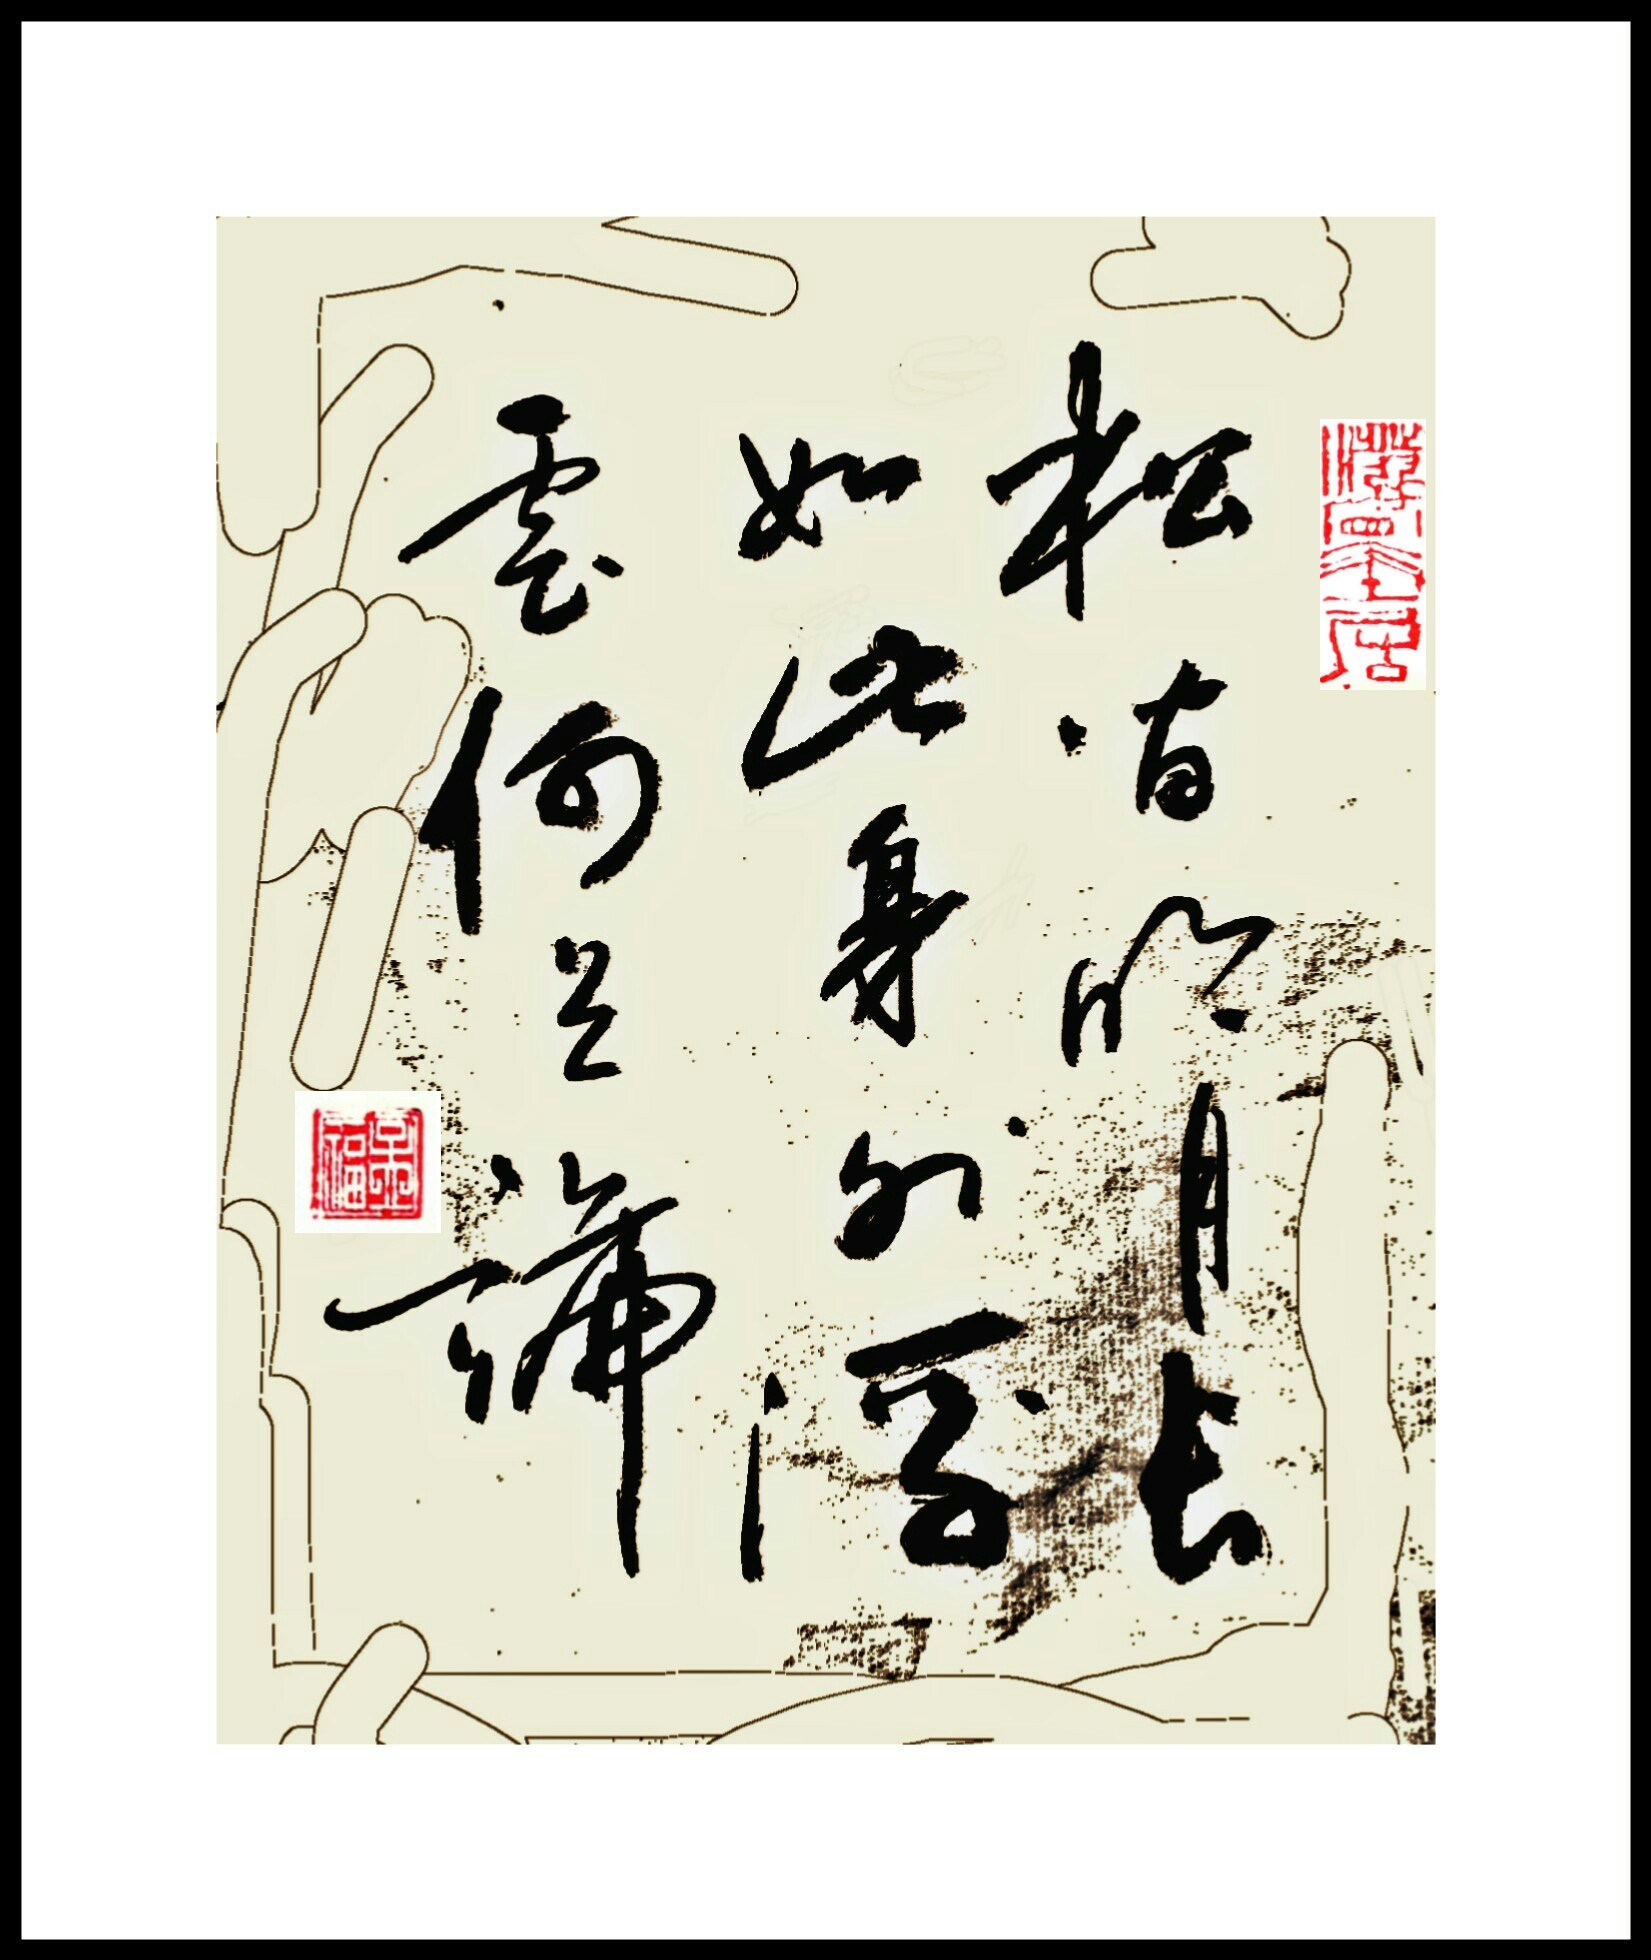 松間明月長
如此身外浮
雲何足論